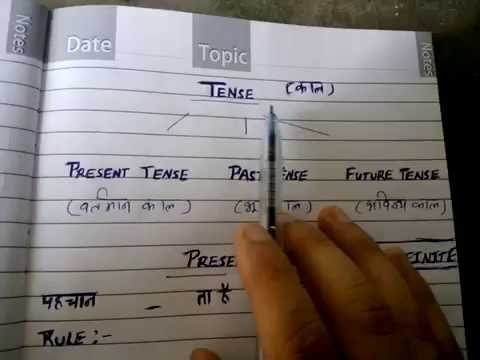 Notes Date Topic Notes
TENSE (काल)
PRESENT TENSE PAST TENSE FUTURE TENSE
(वर्तमान काल) (भविष्य काल)
पहचान - ता है
RULE:-